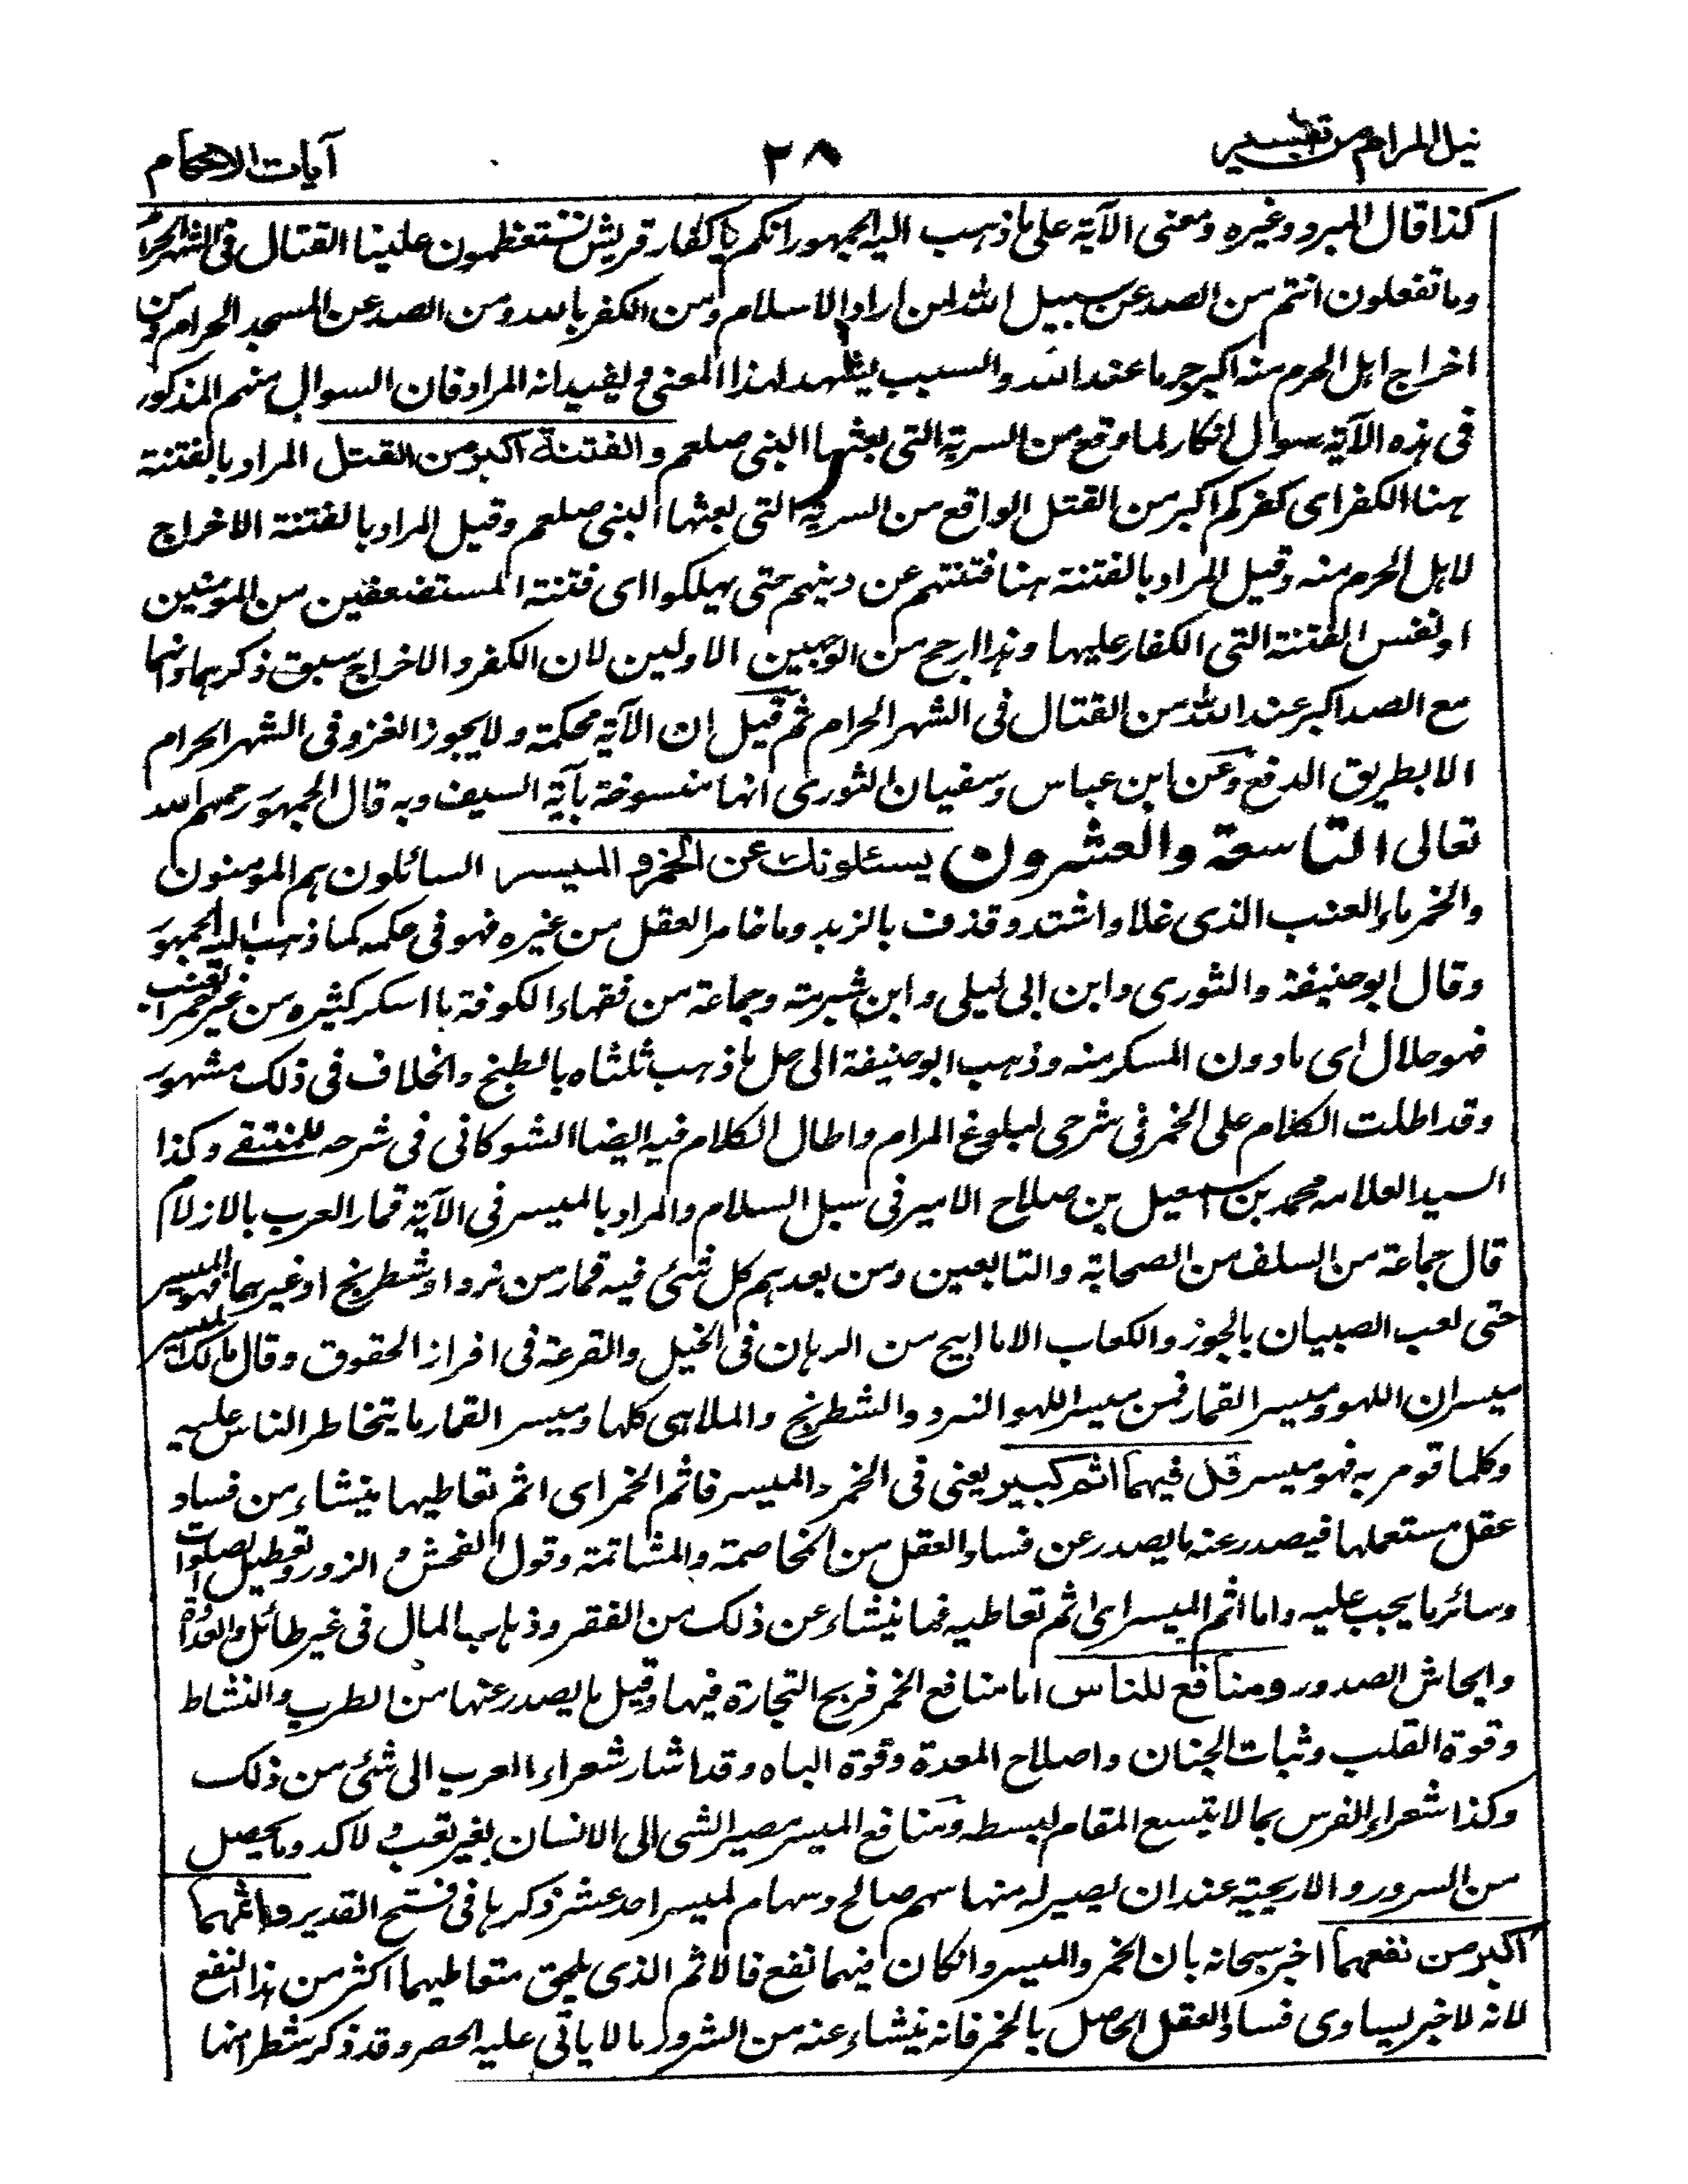 نيل المرام من تفسير ٢٨ آيات الاحكام
كذا قال المبرد وغيره ومعنى الآية على ما ذهب اليه الجمهور انكم يا كفار قريش تستعظمون علينا القتال فى الشهر الحرام
وما تفعلون انتم من الصد عن سبيل الله لمن اراد الاسلام ومن الكفر بالله ومن الصد عن المسجد الحرام ومن
اخراج اهل الحرم منه اكبر جرما عند الله والسبب يشهد لهذا المعنى ويفيد انه المراد فان السوال منهم المذكور
فى هذه الآية سوال انكار لما وقع من السرية التى بعثها النبى صلعم والفتنة اكبر من القتل المراد بالفتنة
هنا الكفر اى كفركم اكبر من القتل الواقع من السرية التى بعثها النبى صلعم وقيل المراد بالفتنة الاخراج
لاهل الحرم منه وقيل المراد بالفتنة هنا فتنتهم عن دينهم حتى يهلكوا اى فتنة المستضعفين من المومنين
او نفس الفتنة التى الكفار عليها وهذا ارجح من الوجهين الاولين لان الكفر والاخراج سبق ذكرهما وانهما
مع الصد اكبر عند الله من القتال فى الشهر الحرام ثم قيل ان الآية محكمة ولا يجوز الغزو فى الشهر الحرام
الا بطريق الدفع وعن ابن عباس وسفيان الثورى انها منسوخة بآية السيف وبه قال الجمهور رحمهم الله
تعالى التاسعة والعشرون يسئلونك عن الخمر والميسر السائلون هم المومنون
والخمر ماء العنب الذى غلا واشتد وقذف بالزبد وما خامر العقل من غيره فهو فى حكمه كما ذهب اليه الجمهور
وقال ابو حنيفة والثورى وابن ابى ليلى وابن شبرمة وجماعة من فقهاء الكوفة ما اسكر كثيره من غير خمر العنب
فهو حلال اى ما دون المسكر منه وذهب ابو حنيفة الى حل ما ذهب ثلثاه بالطبخ والخلاف فى ذلك مشهور
وقد اطلت الكلام على الخمر فى شرحى لبلوغ المرام واطال الكلام فيه ايضا الشوكانى فى شرحه للمنتقى وكذا
السيد العلامه محمد بن اسمعيل بن صلاح الامير فى سبل السلام والمراد بالميسر فى الآية قمار العرب بالازلام
قال جماعة من السلف من الصحابة والتابعين ومن بعدهم كل شئ فيه قمار من نرد او شطرنج او غيرهما فهو الميسر
حتى لعب الصبيان بالجوز والكعاب الا ما ابيح من الرهان فى الخيل والقرعة فى افراز الحقوق وقال مالك الميسر
ميسران اللهو وميسر القمار فمن ميسر اللهو النرد والشطرنج والملاهى كلها وميسر القمار ما يتخاطر الناس عليه
وكلما قومر به فهو ميسر قل فيهما اثم كبير يعنى فى الخمر والميسر فاثم الخمر اى اثم تعاطيها ينشاء من فساد
عقل مستعملها فيصدر عنه ما يصدر عن فساد العقل من المخاصمة والمشاتمة وقول الفحش و الزور وتعطيل الصلوات
وسائر ما يجب عليه واما اثم الميسر اى اثم تعاطيه فما ينشاء عن ذلك من الفقر وذهاب المال فى غير طائل والعداوة
وايحاش الصدور ومنافع للناس اما منافع الخمر فربح التجارة فيها وقيل ما يصدر عنها من الطرب والنشاط
وقوة القلب وثبات الجنان واصلاح المعدة وقوة الباه وقد اشار شعراء العرب الى شئ من ذلك
وكذا شعراء الفرس بما لا يتسع المقام لبسطه ومنافع الميسر مصير الشى الى الانسان بغير تعب ولا كد وما يحصل
من السرور والاريحية عند ان يصير له منها سهم صالح وسهام الميسر احد عشر ذكرها فى فتح القدير واثمهما
اكبر من نفعهما اخبر سبحانه بان الخمر والميسر وانكان فيهما نفع فالاثم الذى يلحق متعاطيهما اكثر من هذا النفع
لانه لا خير يساوى فساد العقل الحاصل بالخمر فانه ينشاء عنه من الشرور ما لا ياتى عليه الحصر وقد ذكر شطرا منها